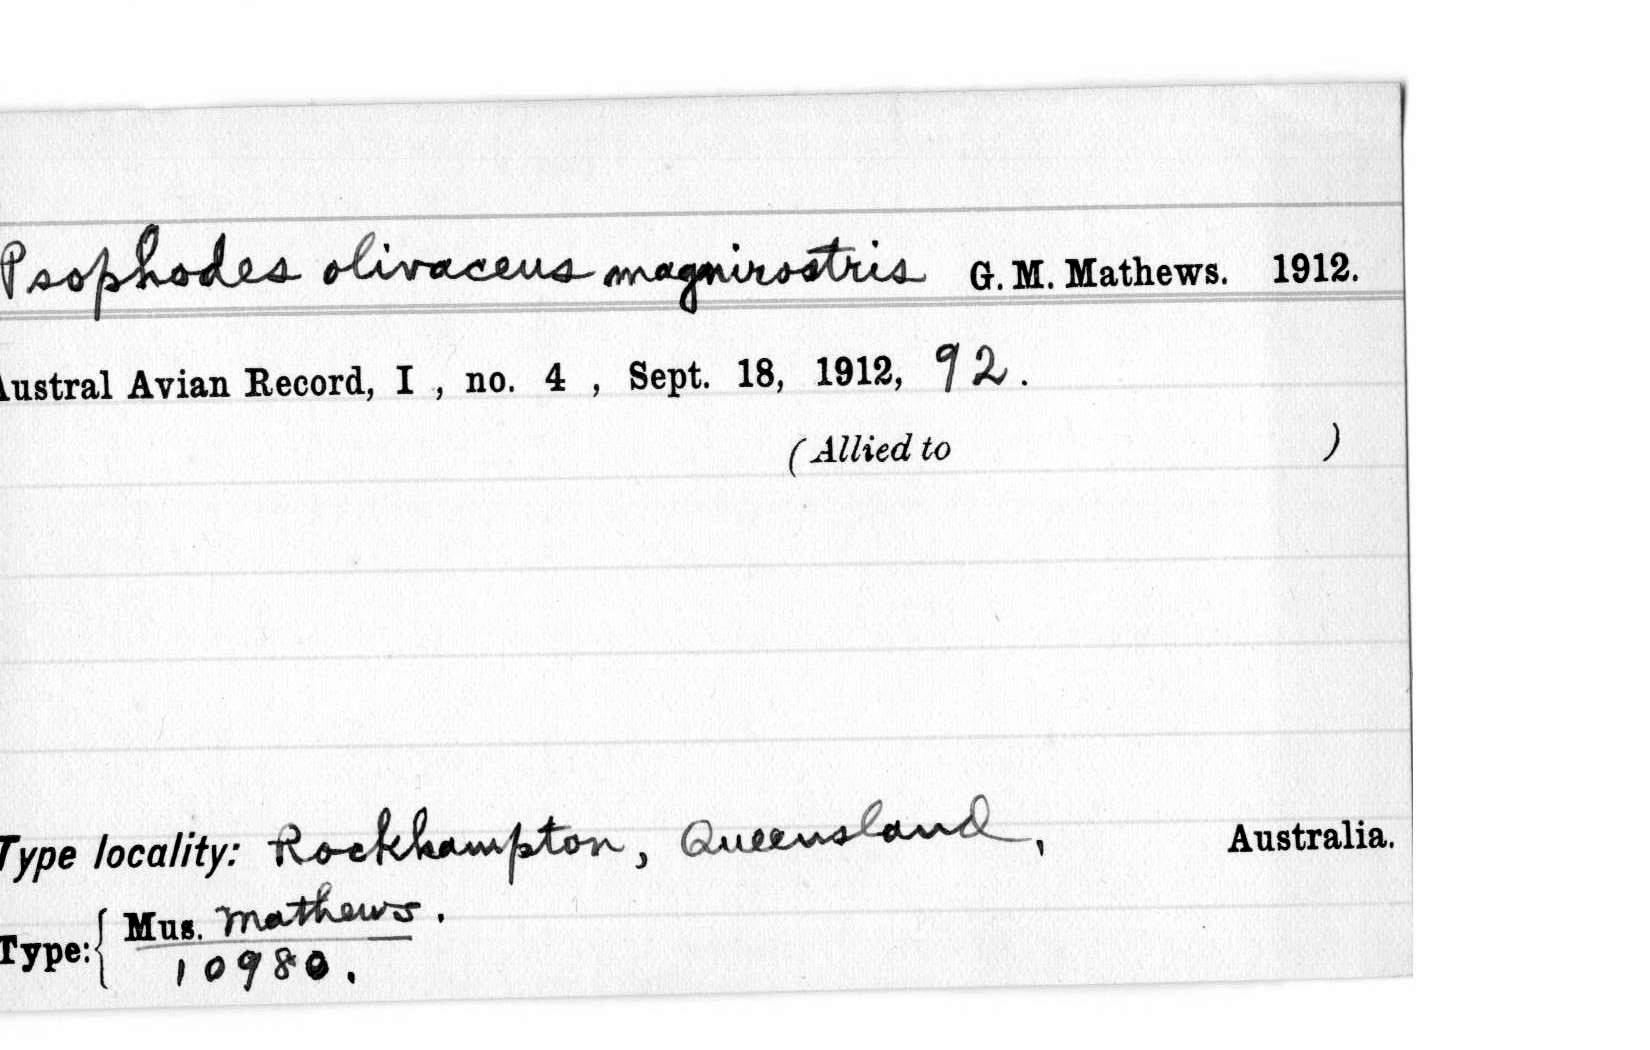 Psophodes olivaceus magnirostris G. M. Mathews. 1912.
Austral Avian Record, I , no. 4 , Sept. 18, 1912, 92.
(Allied to )
Type locality: Rockhampton, Queensland, Australia.
Type: { Mus. Mathews.
10980.